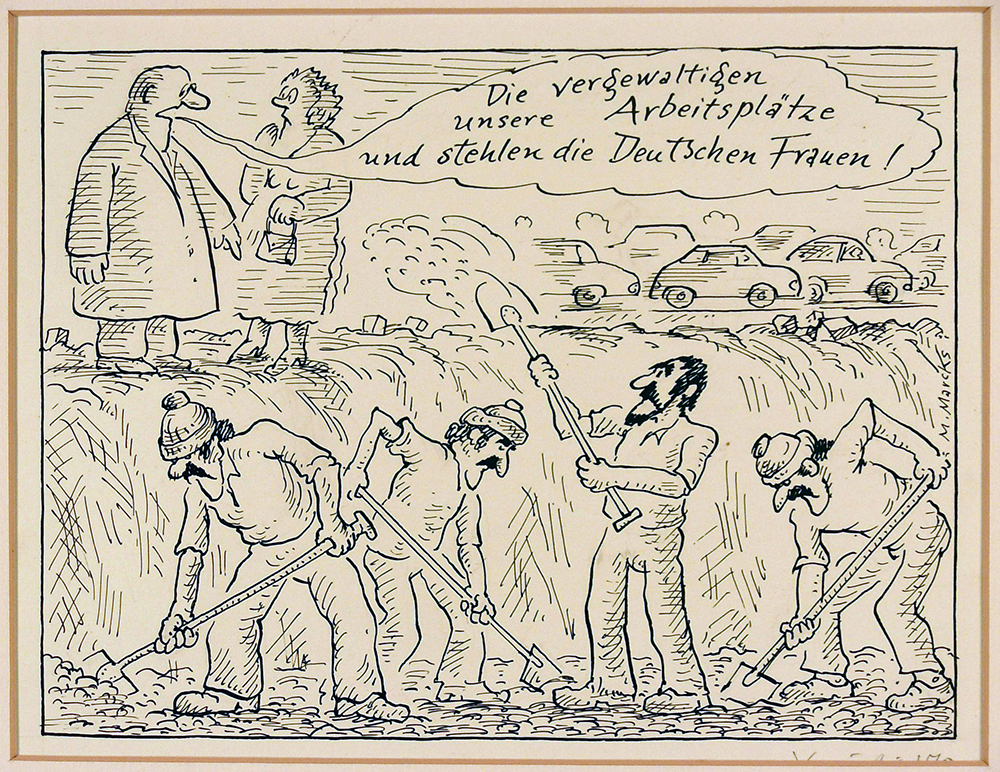 Die vergewaltigen
unsere Arbeitsplätze
und stehlen die Deutschen Frauen!
M. Marcks